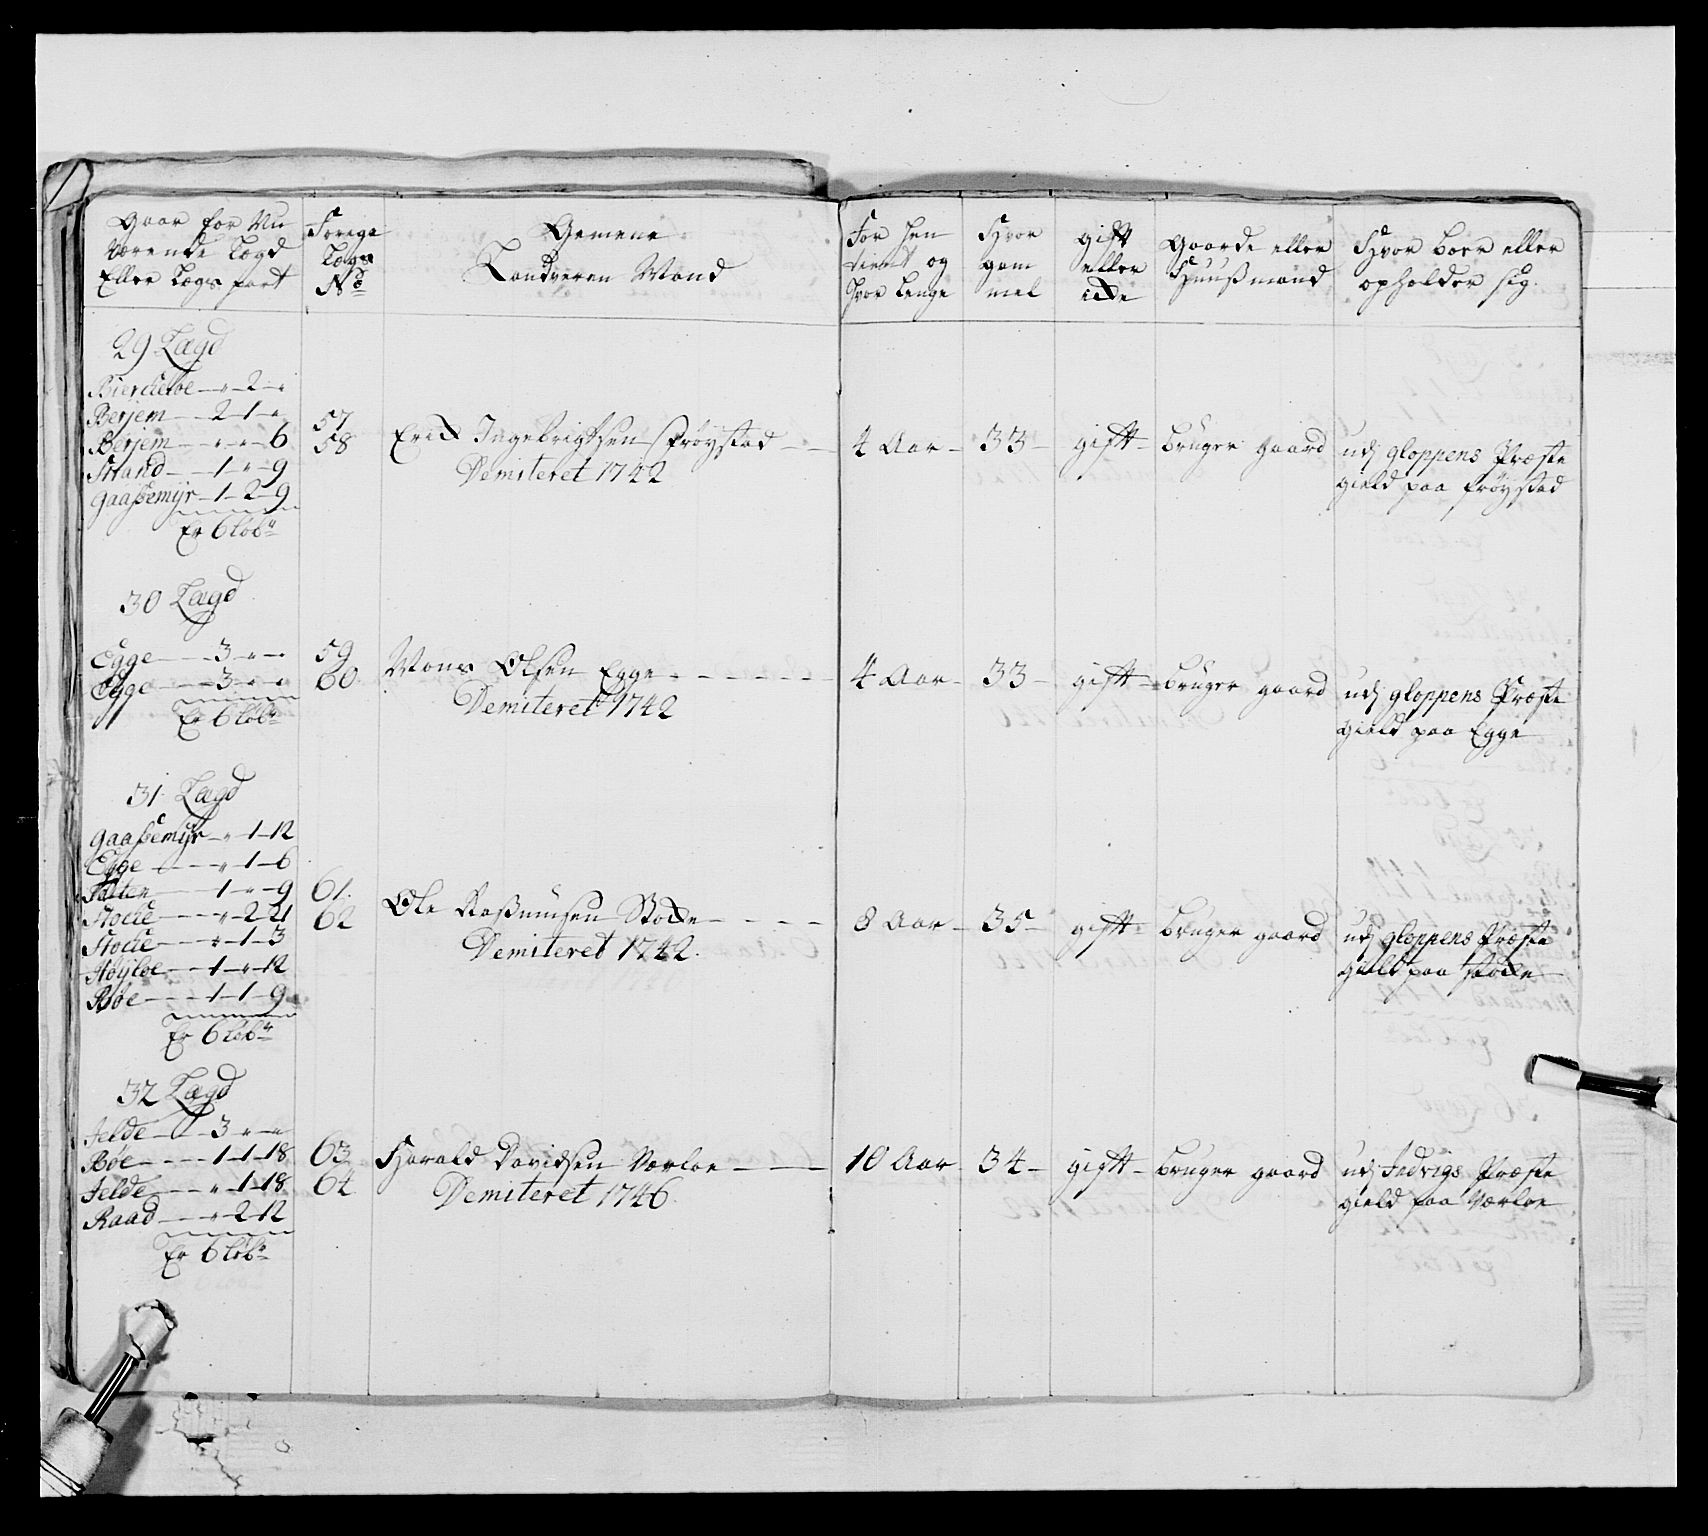 Gaar for Nu
Værende Lægd
Eller Lægs part
Forige
Lægs
No
Gemene
Landværn Mand
For hen
tient og
hvor Lenge
Hvor
gam
mel
gift
eller
icke
Gaarde eller
Huusmand
Hvor boer eller
opholder sig.
29 Lægd
Bierckeloe - " - 2 - "
Berjem - 2 - 1 - "
Berjem - " - " - 6
Strand - 1 - " - 9
Gaassemyr - 1 - 2 - 9
Er 6 løbr
57
58
Erick Ingebrigtsen Frøystad
Demiteret 1742
4 Aar - 33 - gift - bruger gaard
udj gloppens Præste
gield paa frøystad
30 Lægd
Egge - 3 - " - "
Egge - 3 - " - "
Er 6 løbr
59
60
Mons Olsen Egge
Demiteret 1742
4 Aar - 33 - gift - bruger gaard
udj gloppens Præste
gield paa Egge
31 Lægd
Gaassemyr - " - 1 - 12
Egge - " - 1 - 6
- 1 - " - 9
Stocke - " - 2 - 21
Stocke - " - 1 - 3
Høyloe - 1 - " - 12
Bøe - 1 - 1 - 9
Er 6 løbr
61.
62
Ole Rasmusen Stocke
Demiteret 1742.
8 Aar - 35 - gift - bruger gaard
udj gloppens Præste
gield paa Stocke
32 Lægd
Jelde - 3 - " - "
Bøe - 1 - 1 - 18
Jelde - " - 1 - 18
Raad - " - 2 - 12
Er 6 løbr
63
64
Harald Davidsen Værloe
Demiteret 1746.
10 Aar - 34 - gift - bruger gaard
udj Indvigs Præste
gield paa Værloe